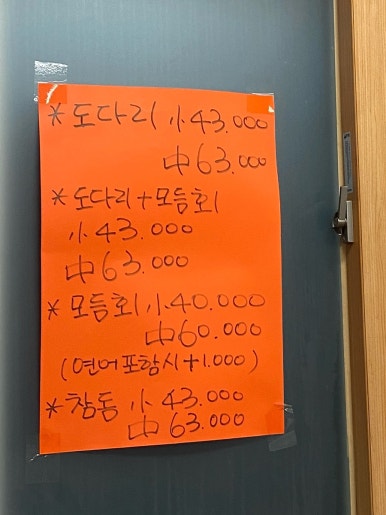 * 도다리 小 43.000
中 63.000
* 도다리+모듬회
小 43.000
中 63.000
* 모듬회 小 40.000
中 60.000
(연어포함시+1.000)
* 참돔 小 43.000
中 63.000